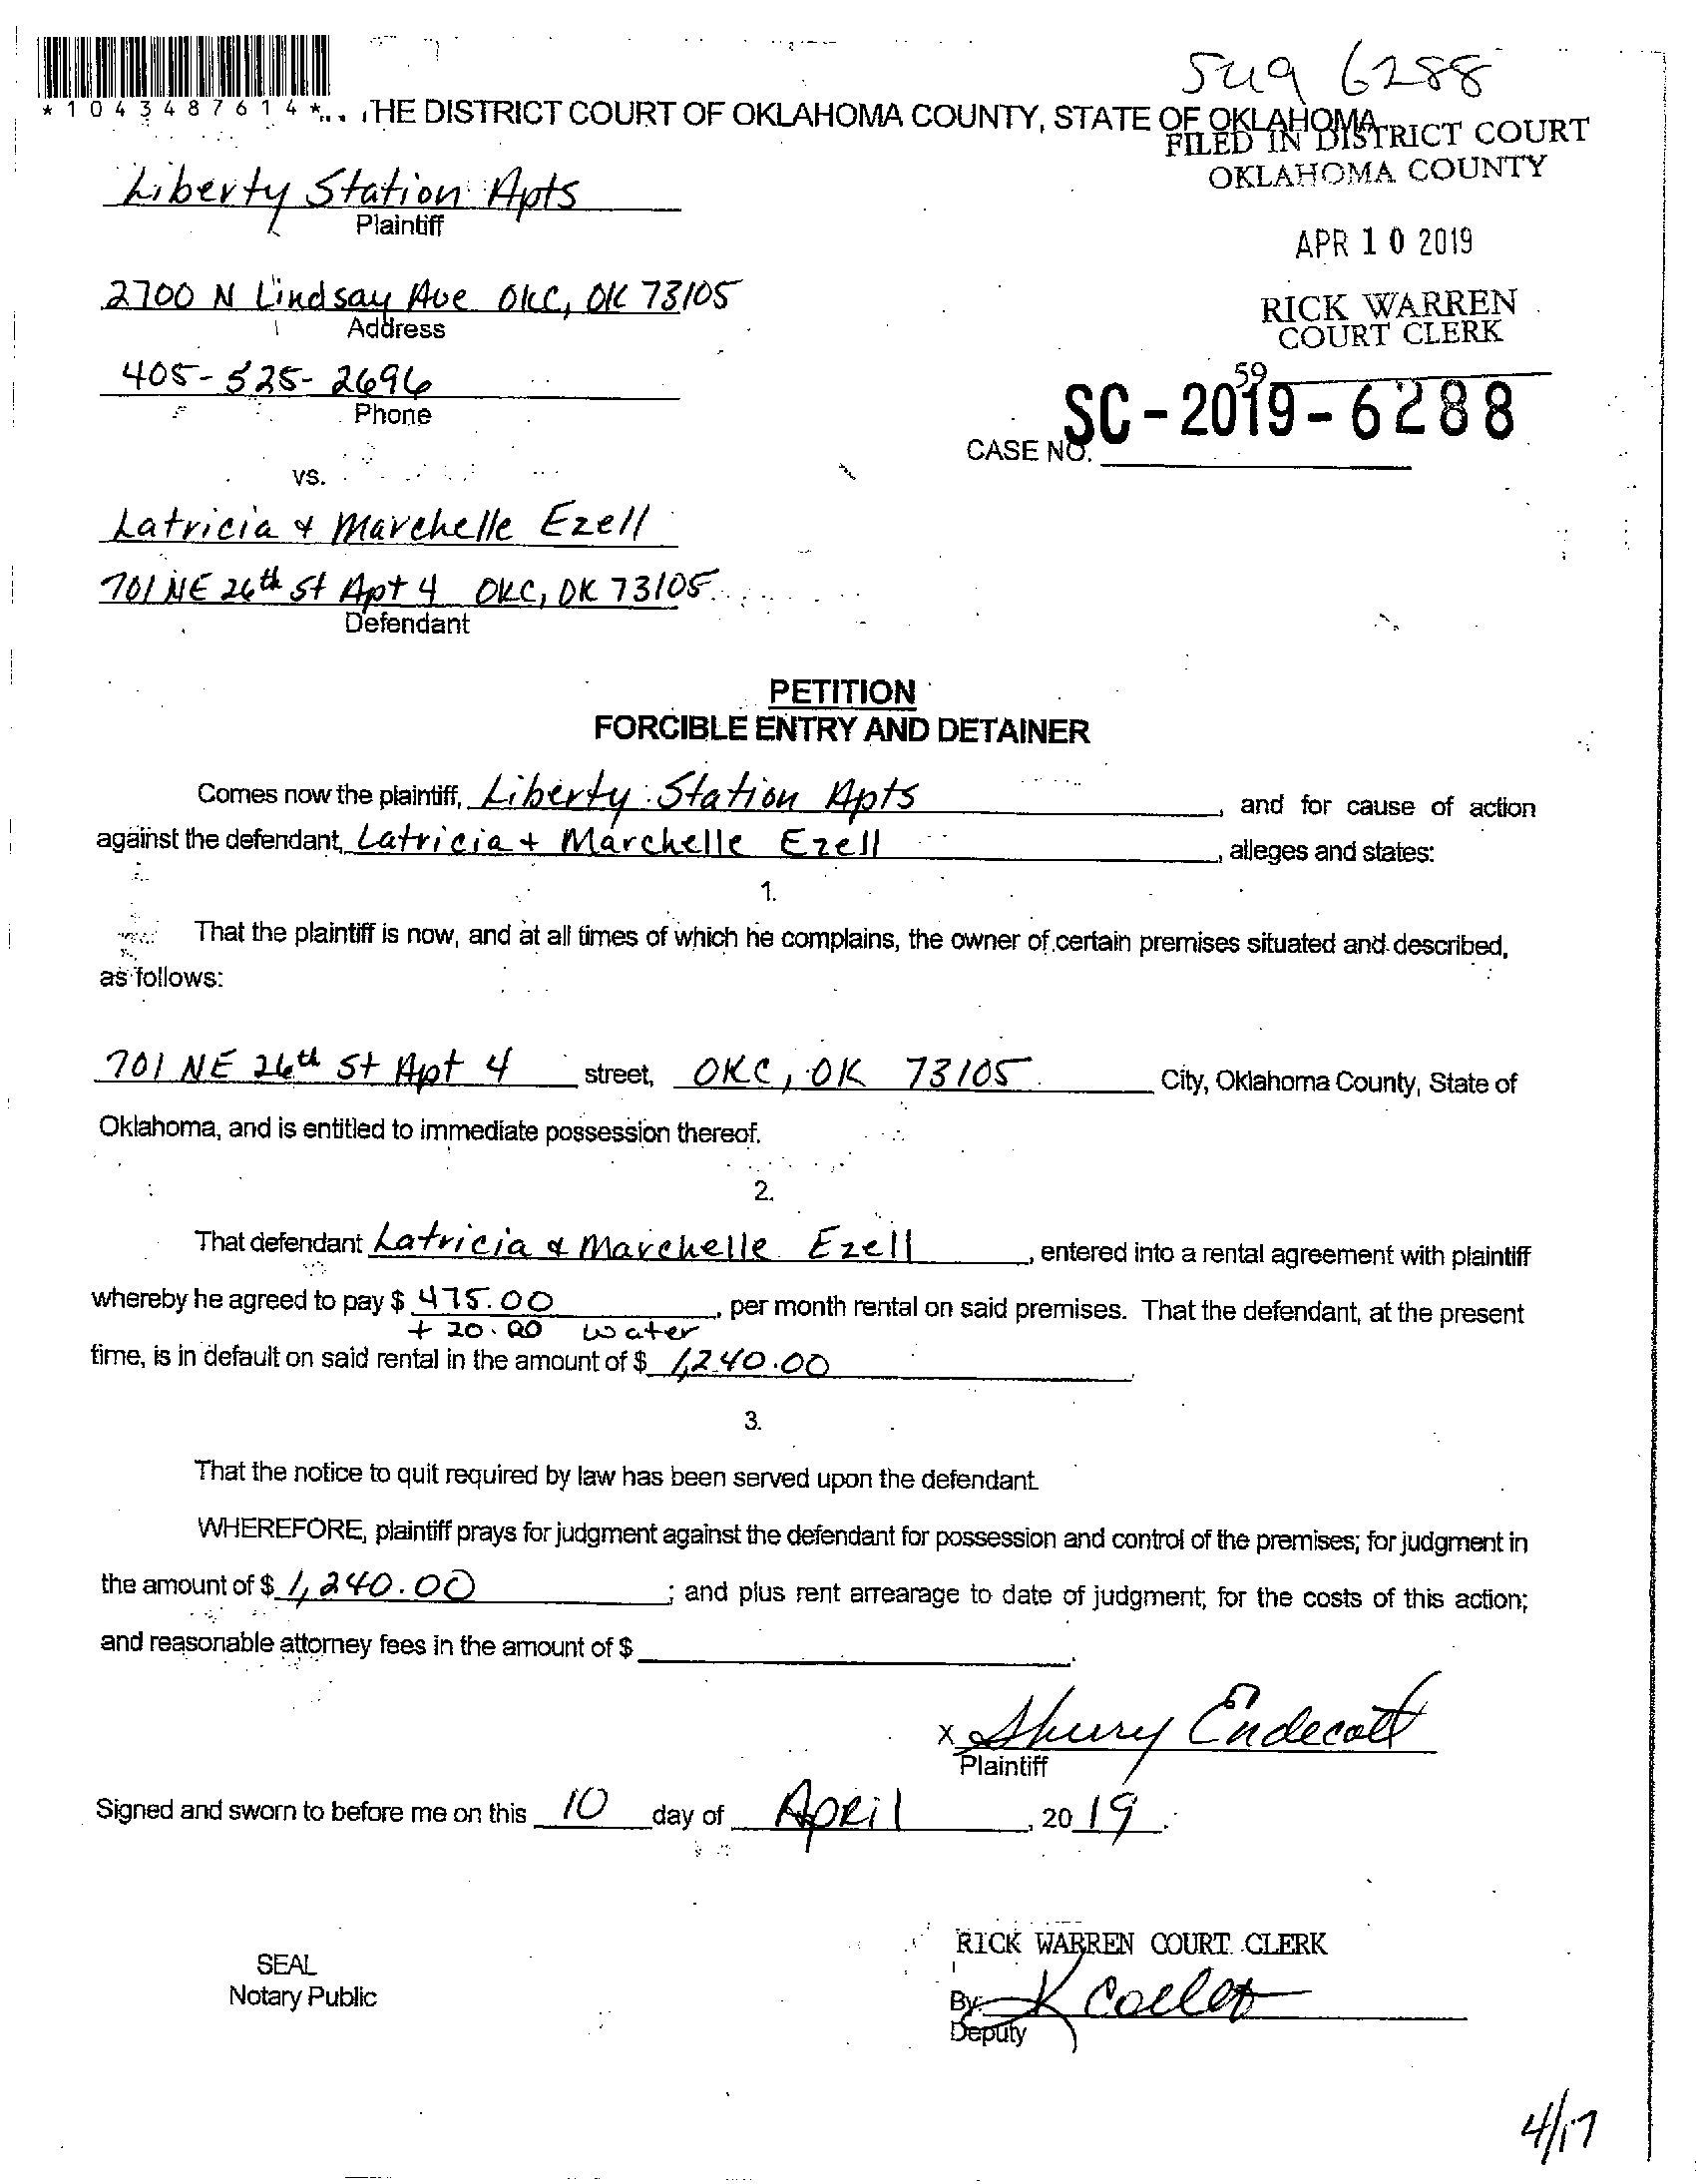 Sug 6288
*1043487614*
THE DISTRICT COURT OF OKLAHOMA COUNTY, STATE OF OKLAHOMA
FILED IN DISTRICT COURT
OKLAHOMA COUNTY
Liberty Station Apts
Plaintiff
APR 10 2019
2700 N Lindsay Ave OKC, OK 73105
Address
RICK WARREN
COURT CLERK
405-525-2696
Phone
59
CASE NO. SC-2019-6288
vs.
Latricia & Marchelle Ezell
701 NE 26th St Apt 4 OKC, OK 73105
Defendant
PETITION
FORCIBLE ENTRY AND DETAINER
Comes now the plaintiff, Liberty Station Apts, and for cause of action
against the defendant, Latricia + Marchelle Ezell, alleges and states:
1.
That the plaintiff is now, and at all times of which he complains, the owner of certain premises situated and described,
as follows:
701 NE 26th St Apt 4 street, OKC, OK 73105 City, Oklahoma County, State of
Oklahoma, and is entitled to immediate possession thereof.
2.
That defendant Latricia & Marchelle Ezell, entered into a rental agreement with plaintiff
whereby he agreed to pay $ 475.00, per month rental on said premises. That the defendant, at the present
+ 20.00 water
time, is in default on said rental in the amount of $ 1,240.00.
3.
That the notice to quit required by law has been served upon the defendant.
WHEREFORE, plaintiff prays for judgment against the defendant for possession and control of the premises; for judgment in
the amount of $ 1,240.00; and plus rent arrearage to date of judgment; for the costs of this action;
and reasonable attorney fees in the amount of $
X Sherry Endecott
Plaintiff
Signed and sworn to before me on this 10 day of April, 2019.
RICK WARREN COURT CLERK
SEAL
Notary Public
By: K
Deputy
4/17